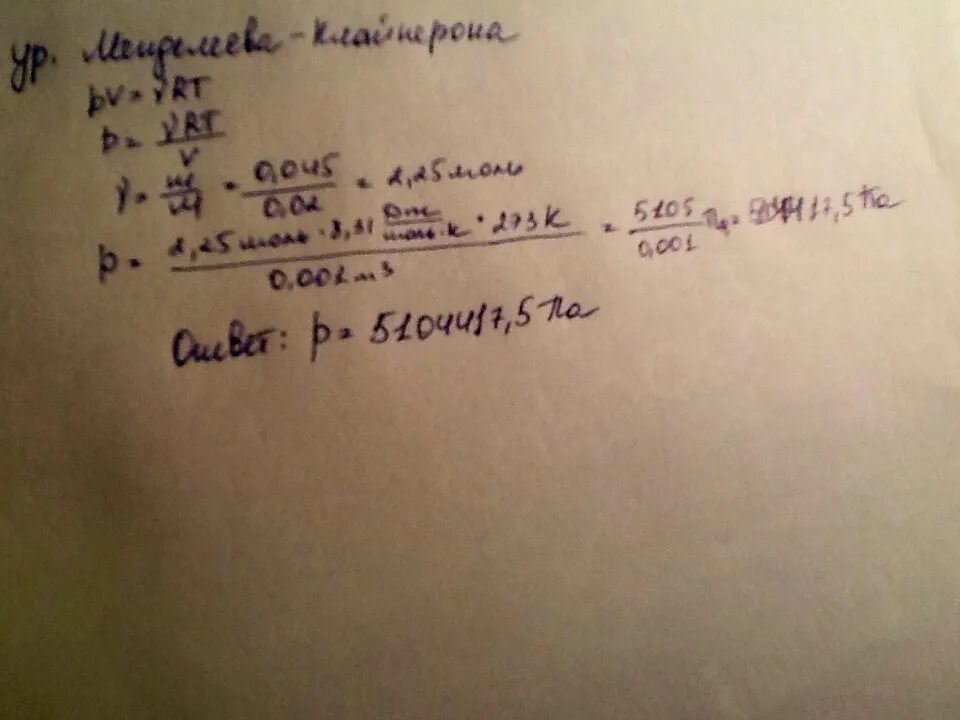 ур. Менделеева-Клайперона
pV = γRT
p = γRT / V
γ = m / M = 0,045 / 0,02 = 2,25 моль
p = 2,25 моль · 8,31 Дж / моль·к · 273 К / 0,001 м³ = 5105 / 0,001 Па = 17,5 Па
Ответ: p = 5104417,5 Па